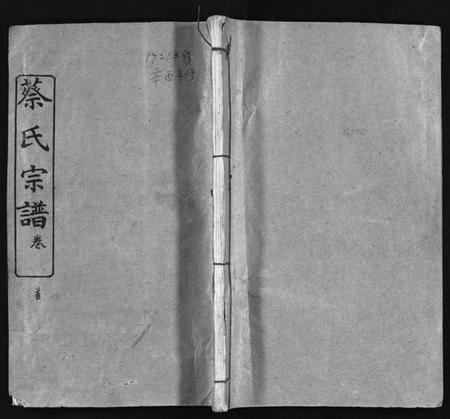 蔡氏宗譜
卷
首
1921年修
辛酉年修